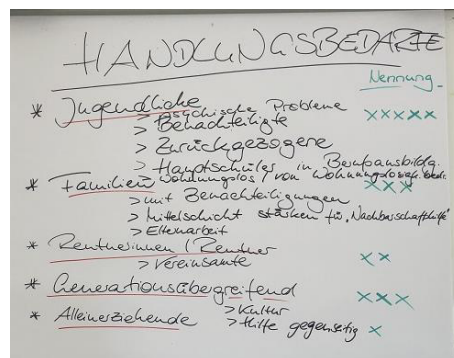 HANDLUNGSBEDARFE
Nennung
* Jugendliche xxxxx
> psychische Probleme
> Benachteiligte
> Zurückgezogene
> Hauptschüler in Berufsausbildg.
> wohnungslos / von Wohnungslosigk. bedr.
* Familien xxx
> mit Benachteiligungen
> Mittelschicht stärken für "Nachbarschaftshilfe"
> Elternarbeit
* Rentnerinnen / Rentner xx
> Vereinsamte
* Generationsübergreifend xxx
> Kultur
> Hilfe gegenseitig
* Alleinerziehende x